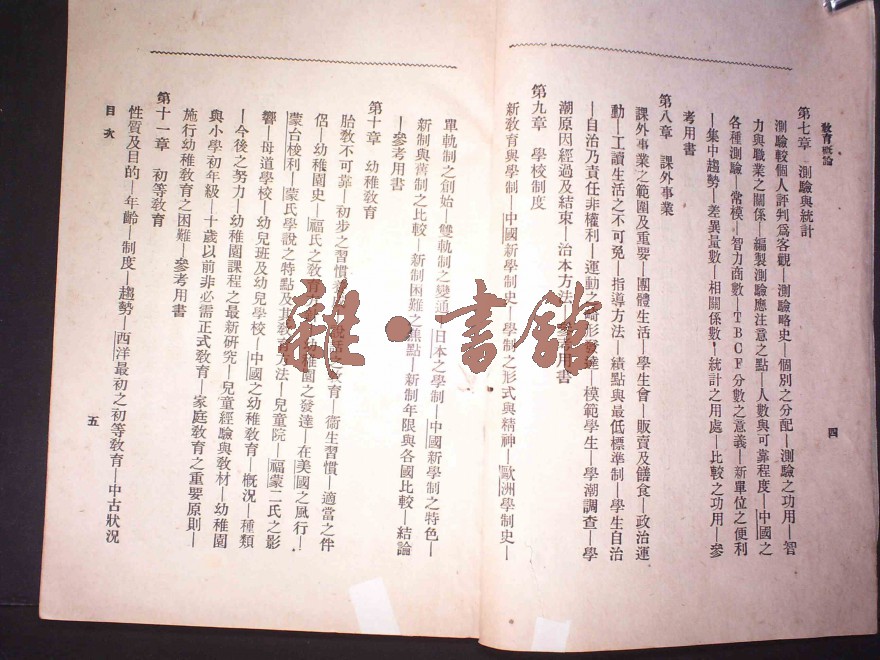 教育概論
四
第七章 測驗與統計
測驗較個人評判爲客觀—測驗略史—個別之分配—測驗之功用—智
力與職業之關係—編製測驗應注意之點—人數與可靠程度—中國之
各種測驗—常模—智力商數—TBCF分數之意義—新單位之便利
—集中趨勢—差異量數—相關係數—統計之用處—比較之功用—參
考用書
第八章 課外事業
課外事業之範圍及重要—團體生活—學生會—販賣及饍食—政治運
動—工讀生活之不可免—指導方法—績點與最低標準制—學生自治
—自治乃責任非權利—運動之畸形發達—模範學生—學潮調查—學
潮原因經過及結束—治本方法—參考用書
第九章 學校制度
新教育與學制—中國新學制史—學制之形式與精神—歐洲學制史—
單軌制之創始—雙軌制之變通—日本之學制—中國新學制之特色—
新制與舊制之比較—新制困難之焦點—新制年限與各國比較—結論
—參考用書
第十章 幼稚教育
胎教不可靠—初步之習慣 教育—衞生習慣—適當之件
侶—幼稚園史—福氏之教育 幼稚園之發達—在美國之風行—
蒙台梭利—蒙氏學說之特點及其教育方法—兒童院—福蒙二氏之影
響—母道學校—幼兒班及幼兒學校—中國之幼稚教育—概況—種類
—今後之努力—幼稚園課程之最新研究—兒童經驗與教材—幼稚園
與小學初年級—十歲以前非必需正式教育—家庭教育之重要原則—
施行幼稚教育之困難—參考用書
第十一章 初等教育
性質及目的—年齡—制度—趨勢—西洋最初之初等教育—中古狀況
目次
五
雜·書館